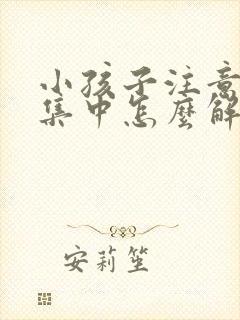 小孩子注意
集中怎麼解
安莉笙